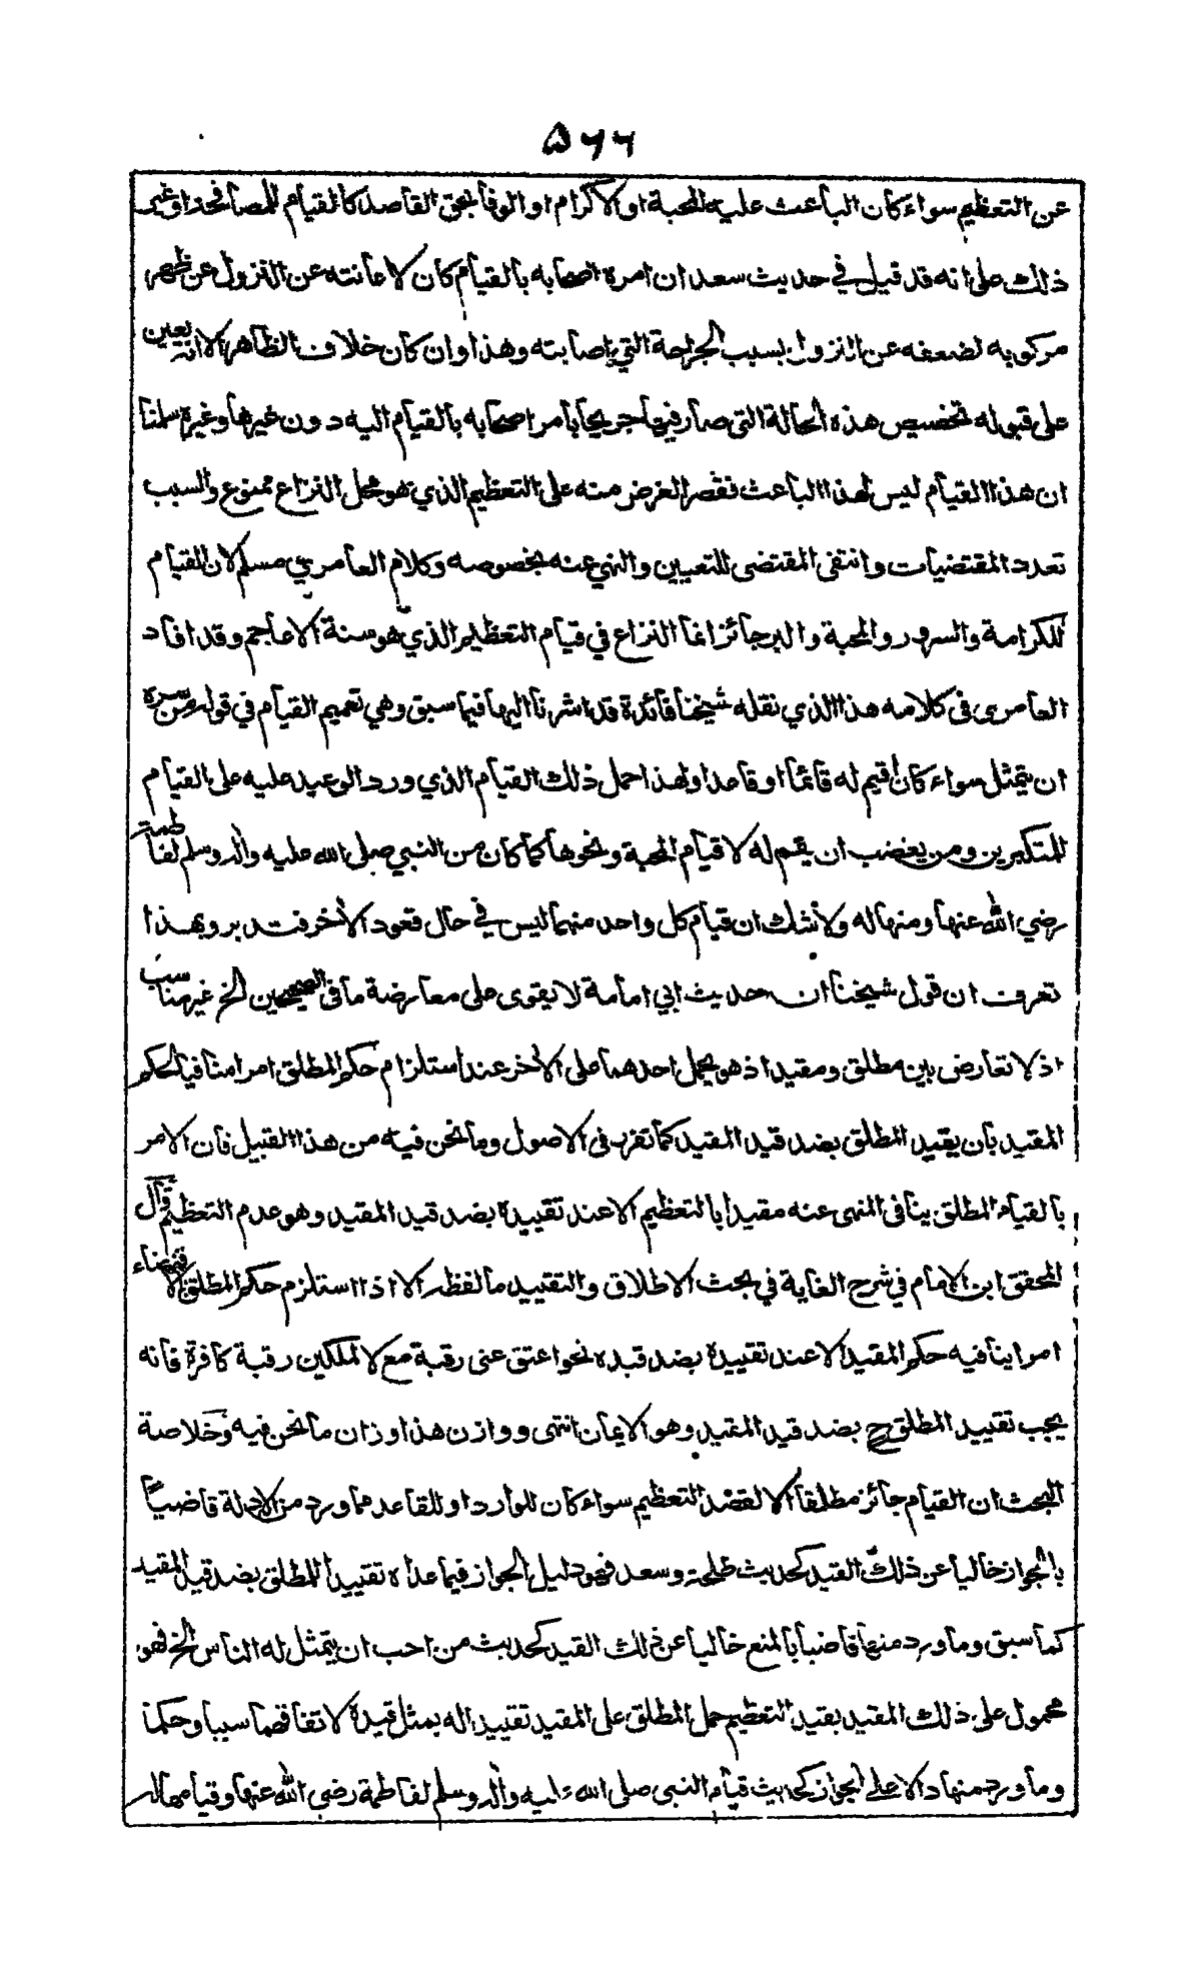 ۵۶۶
عن التعظيم سواء كان الباعث عليه المحبة او الاكرام او الوفا بحق القاصد كالقيام للمصافحة او غير
ذلك على انه قد قيل في حديث سعد ان امره اصحابه بالقيام كان لاعانته عن النزول عن ظهر
مركوبه لضعفه عن النزول بسبب الجراحة التي اصابته وهذا وان كان خلاف الظاهر الا انه يعين
على قبوله تخصيص هذه الحالة التى صار فيها جريحا بامر اصحابه بالقيام اليه دون غيرها وغيره سلمنا
ان هذا القيام ليس لهذا الباعث فقصر الغرض منه على التعظيم الذي هو محل النزاع ممنوع والسبب
تعدد المقتضيات وانتفى المقتضى للتعيين والنهي عنه بخصوصه وكلام العامري مسلم لان القيام
للكرامة والسرور والمحبة والبر جائز انما النزاع في قيام التعظيم الذي هو سنة الاعاجم وقد افاد
العامرى فى كلامه هذا الذي نقله شيخنا فائدة قد اشرنا اليها فيما سبق وهي تعميم القيام في قوله من سره
ان يتمثل سواء كان اقيم له قائما او قاعدا ولهذا حمل ذلك القيام الذي ورد الوعيد عليه على القيام
للمتكبرين ومن يغضب ان يقم له لا قيام المحبة ونحوها كما كان من النبي صلى الله عليه واله وسلم لفاطمة
رضي الله عنها ومنها له ولا شك ان قيام كل واحد منهما ليس في حال قعود الأخر فتدبر وبهذا
تعرف ان قول شيخنا ان حديث ابي امامة لا يقوى على معارضة ما فى الصحيحين الخ غير مناسب
اذ لا تعارض بين مطلق ومقيد اذ هو يحمل احدهما على الأخر عند استلزام حكم المطلق امرا منافيا لحكم
المقيد بان يقيد المطلق بضد قيد المقيد كما تقرر فى الاصول وما نحن فيه من هذا القبيل فان الامر
بالقيام المطلق ينافى المنهى عنه مقيدا بالتعظيم الا عند تقييده بضد قيد المقيد وهو عدم التعظيم قال
المحقق ابن الامام في شرح الغاية في بحث الاطلاق والتقييد ما لفظه الا اذا استلزم حكم المطلق الاقتضاء
امرا ينافيه حكم المقيد الا عند تقييده بضد قيده نحو اعتق عنى رقبة مع لا تملكين رقبة كافرة فانه
يجب تقييد المطلق ح بضد قيد المقيد وهو الايمان انتهى ووازن هذا وزان ما نحن فيه وخلاصة
البحث ان القيام جائز مطلقا الا لقصد التعظيم سواء كان للوارد او للقاعد فما ورد من الادلة قاضيا
بالجواز خاليا عن ذلك القيد كحديث طلحة وسعد فهو دليل الجواز فيما عداه تقييدا للمطلق بضد قيد المقيد
كما سبق وما ورد منها قاضيا بالمنع خاليا عن ذلك القيد كحديث من احب ان يتمثل له الناس الخ فهو
محمول على ذلك المقيد بقيد التعظيم حمل المطلق على المقيد تقييدا له بمثل قيده لاتفاقهما سببا وحكما
وما ورد منها دالا على الجواز كحديث قيام النبي صلى الله عليه واله وسلم لفاطمة رضي الله عنها وقيامها له